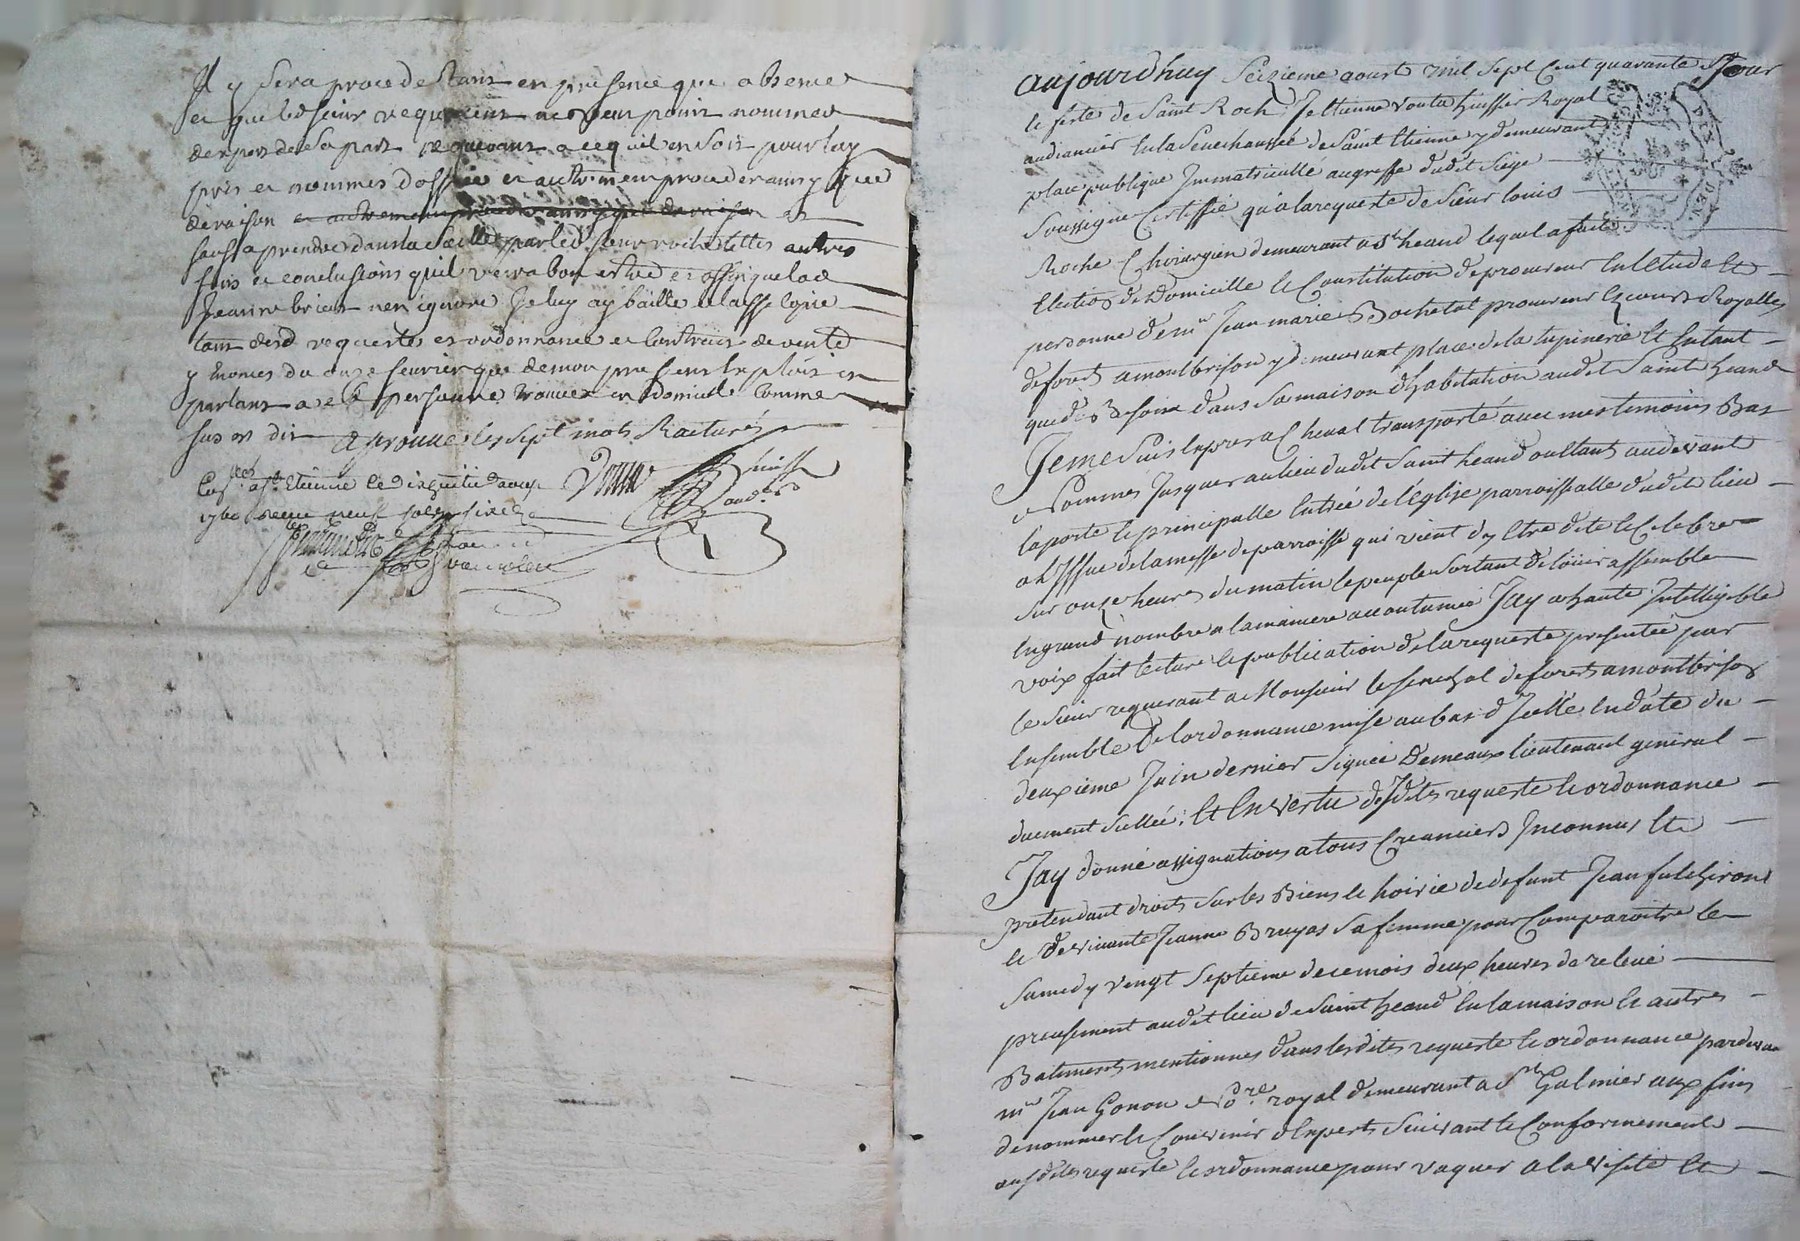 Il y sera procede tant en presence que absence
et que led sieur requerant ne veut point nommer
dexpers de sa part requerant a ce quil en soit pour luy
pris et nommes doffice et autrement proceder ainsy que
de raison et autrement proceder ainsy que de raison et
sauf a prendre dans la suitte par led sieur roche telles autres
fins et conclusions quil verra bon estre et affin que lad
Jeanne brieas nen ignore Je luy ay baille et laisse copie
tant desd requestes et ordonnance et
y du onze fevrier que de mon present Exploit en
parlant a sa personne trouvee en domicile comme
sus est dit aprouve les sept mots Raturés
a St Etienne le dixhuitie aoux
1740 Receu neuf sols six d
aujourdhuy Seizieme aoust mil Sept Cent quarante Jour
le feste de Saint Roch Je Etienne vouta huissier Royal
audiancier En la Senechaussée de Saint Etienne y demeurant
place publique Immatricullé au greffe dudit Siege
Soussigne Certiffie qu'a la requeste de Sieur louis
Roche Chirurgien demeurant a St heand lequel a faite
Election de Domicille et Constitution de procureur En l'Etude et
personne de me Jean marie Bochetal procureur Es cours Royalles
de forets a montbrison y demeurant place de la tupinerie Et Entant
que de besoin dans sa maison d'habitation audit Saint heand
Je me Suis Expres a Cheval transporté avec mes temoins Bas
Nommes Jusques au lieu dudit Saint heand ou Etant au devant
la porte et principalle Entrée de l'Eglise parroissialle dudit lieu
a L'Issue de la messe de parroisse qui vient dy Etre dite et Celebree
sur onze heures du matin le peuple Sortant de l'ouir assemble
En grand nombre a la maniere accoutumée Jay a haute Intelligible
voix fait lecture et publication de la requeste presentée par
le Sieur requerant a Monsieur le senechal de forets a montbrison
Ensemble de l'ordonnance mise au bas d'Icelle En date du
deuxieme Juin dernier Signée Demeaux lieutenant general
duement Scellée; Et En vertu desdites requeste et ordonnance
Jay donné assignations a tous Creanciers Inconnus Et
pretendant droits Sur les Biens et hoirie de defunt Jean fulchiron
et De vivante Jeanne Bruyas Sa femme pour Comparoitre le
Samedy vingt Septieme de ce mois deux heures de relevé
precisement audit lieu de Saint heand En la maison et autres
Batiments mentionnes dans lesdites requeste et ordonnance pardevan
me Jean Gonon Nore royal demeurant a St Galmier aux fins
de nommer et Convenir d'Experts Suivant et Conformement
ausdites requeste et ordonnance pour vaquer a la visite Et